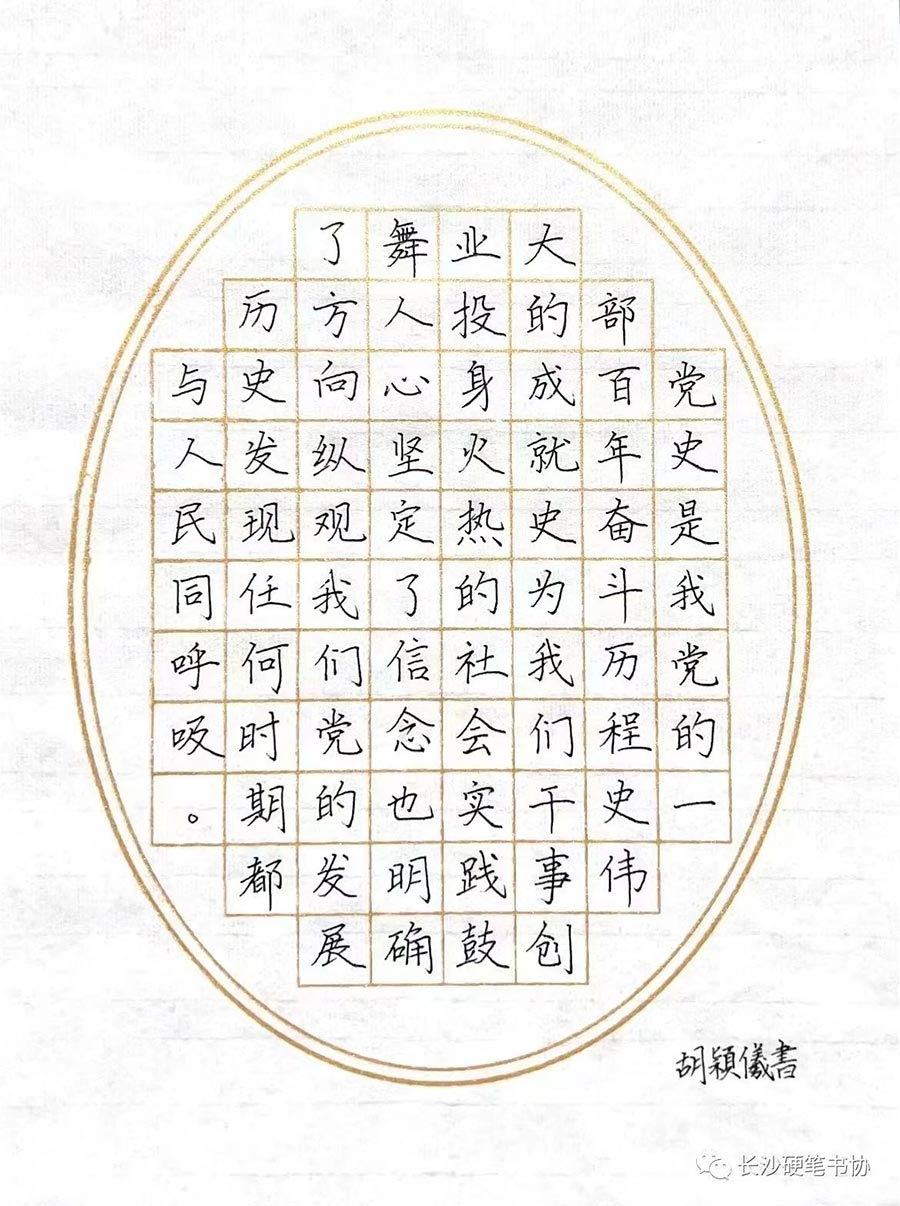 党史是我党的一
部百年奋斗历程史伟
大的成就史为我们干事创
业投身火热的社会实践鼓
舞人心坚定了信念也明确
了方向纵观我们党的发展
历史发现任何时期都
与人民同呼吸。
胡颖儀書
长沙硬笔书协